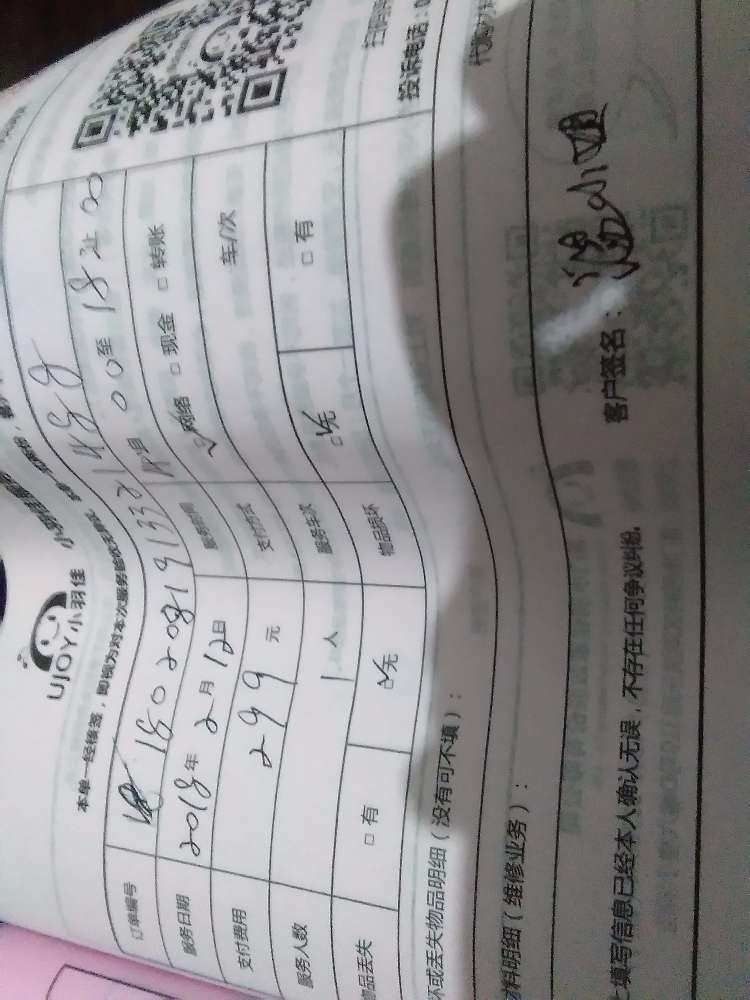 UJOY小羽佳
本单一经接签，即视为对本次服务
订单编号 1802081913321488
服务日期 2018年2月12日 服务时间 00至18止00
支付费用 299元 支付方式 ☑网络 □现金 □转账
服务人数 1人 服务车次 车/次
物品丢失 □有 ☑无 物品损坏 ☑无 □有
坏或丢失物品明细（没有可不填）：
材料明细（维修业务）：
填写信息已经本人确认无误，不存在任何争议纠纷。 客户签名：
投诉电话：0